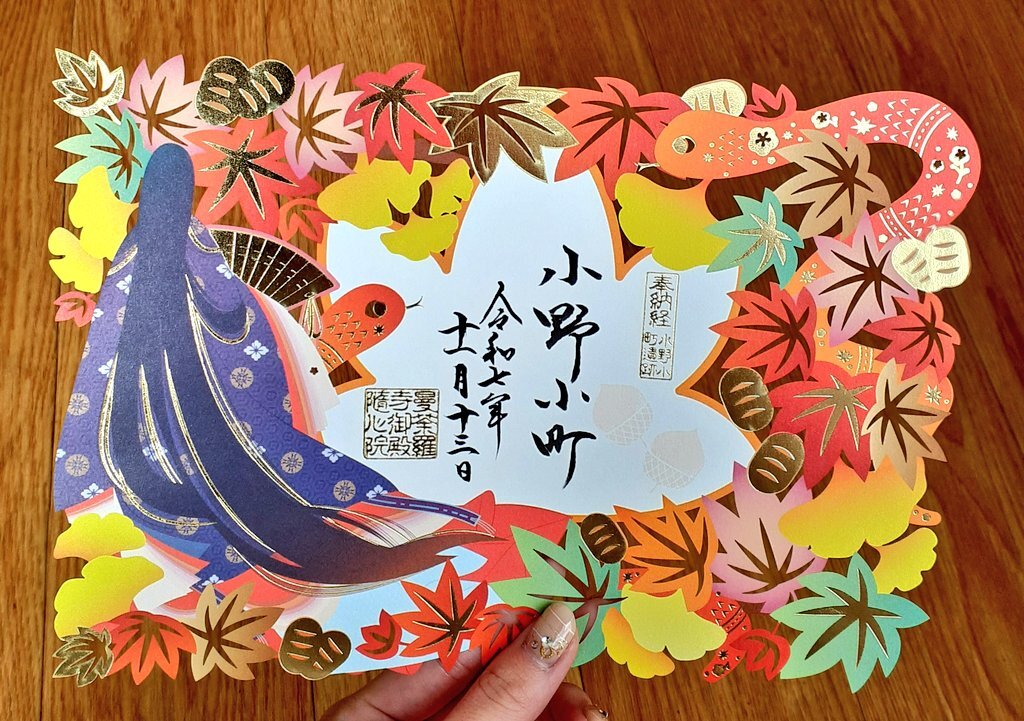 奉納経
小野小
町遺跡
小野小町
令和七年
十一月十三日
曼荼羅
寺御殿
隨心院